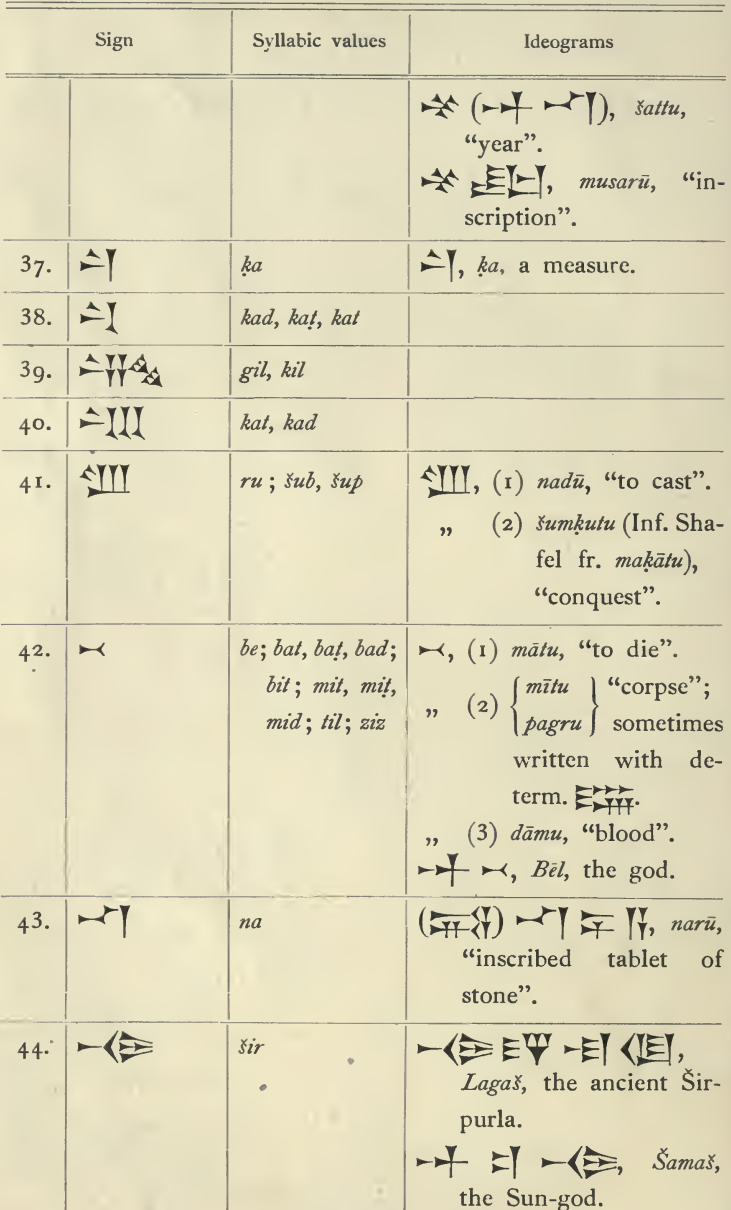 Sign Syllabic values Ideograms
𒈬 (𒀭 𒈾), šattu,
“year”.
𒈬 𒊬, musarū, “in-
scription”.
37. 𒋡 ḳa 𒋡, ḳa, a measure.
38. 𒃰 kad, kaṭ, kat
39. 𒄃 gil, kil
40. kat, kad
41. 𒊒 ru; šub, šup 𒊒, (1) nadū, “to cast”.
„ (2) šumḳutu (Inf. Sha-
fel fr. maḳātu),
“conquest”.
42. 𒁁 be; bat, baṭ, bad; 𒁁, (1) mātu, “to die”.
bit; mit, miṭ, „ (2) { mītu } “corpse”;
mid; til; ziz { pagru } sometimes
written with de-
term. 𒍜.
„ (3) dāmu, “blood”.
𒀭 𒁁, Bēl, the god.
43. 𒈾 na (𒉌𒌓) 𒈾 𒆕 𒀀, narū,
“inscribed tablet of
stone”.
44. 𒋓 šir 𒋓 𒁓 𒆷 𒆠,
Lagaš, the ancient Šir-
purla.
𒀭 𒄑 𒋓, Šamaš,
the Sun-god.